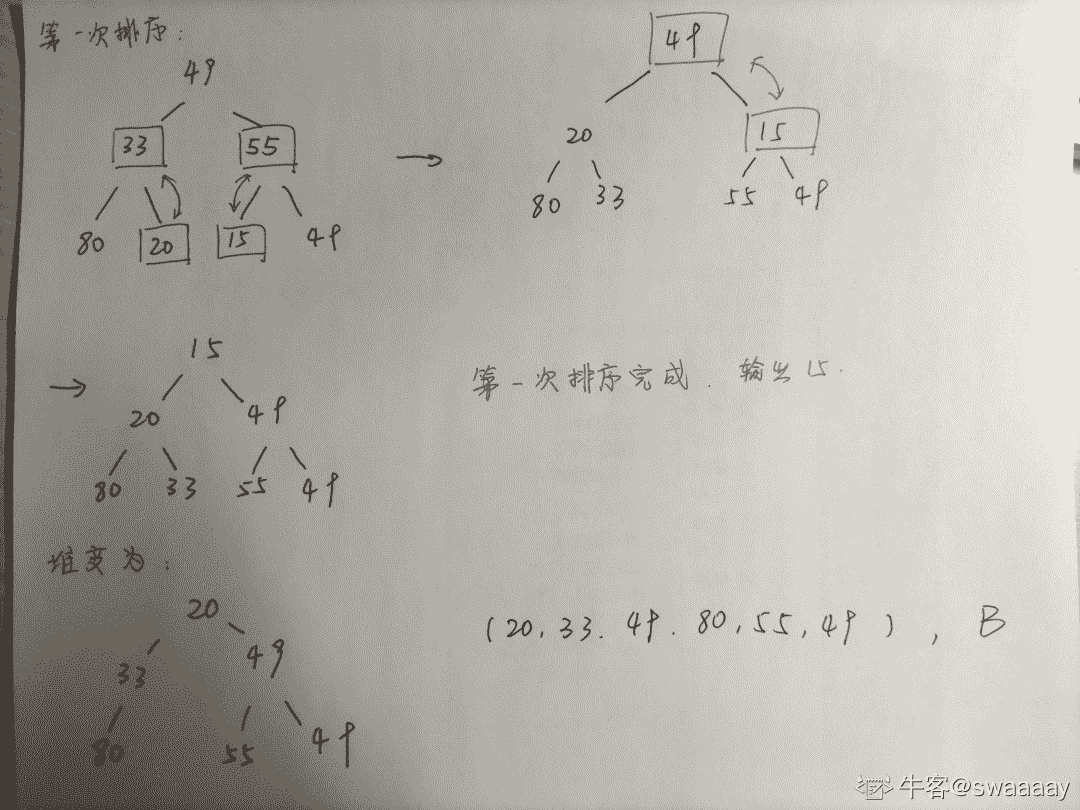 第一次排序:
49
33 55
80 20 15 49
49
20 15
80 33 55 49
15
20 49
80 33 55 49
第一次排序完成. 输出15.
堆变为:
20
33 49
80 55 49
(20, 33. 49. 80, 55, 49), B
牛客@swaaaay